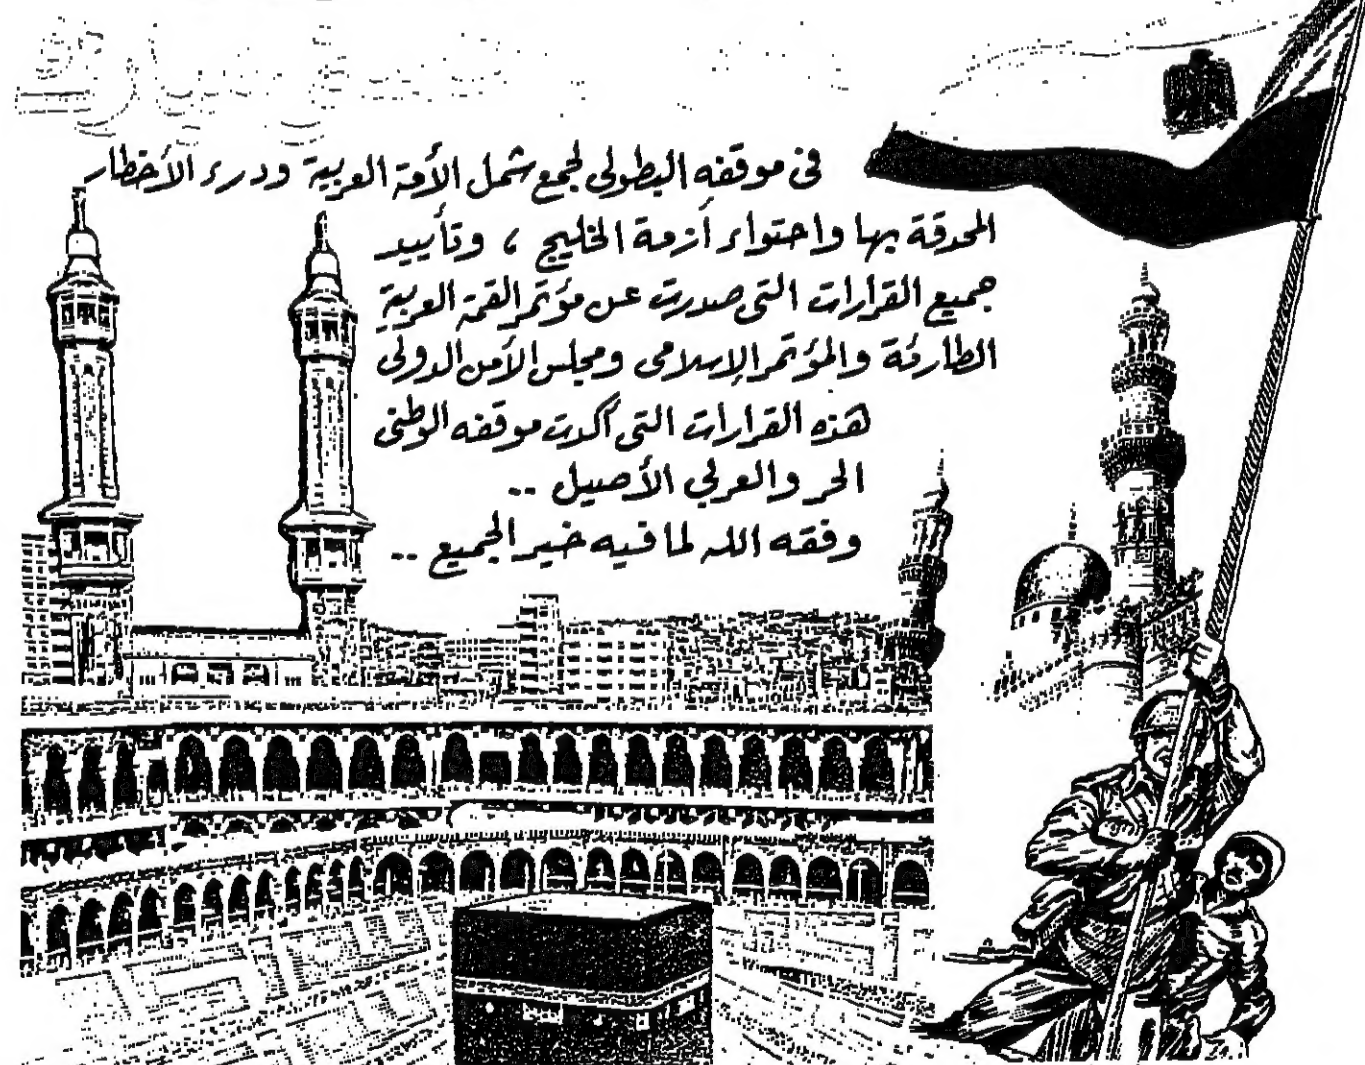 في موقفه البطولي لجمع شمل الأمة العربية ودرء الأخطار
المحدقة بها واحتواء أزمة الخليج ، وتأييد
جميع القرارات التى صدرت عن مؤتمر القمة العربية
الطارئة والمؤتمر الإسلامى ومجلس الأمن الدولى
هذه القرارات التى أكدت موقفه الوطنى
الحر والعربي الأصيل ..
وفقه الله لما فيه خير الجميع ..